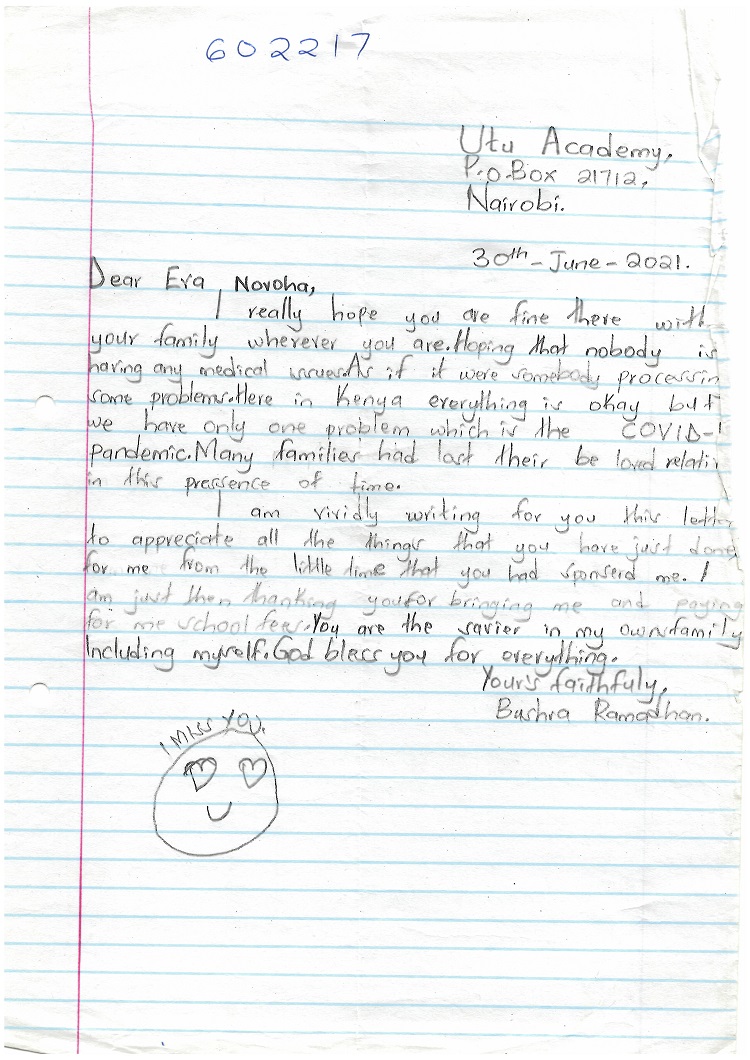 602217
Utu Academy,
P.O.Box 21712,
Nairobi.
30th-June-2021.
Dear Eva Novoha,
I really hope you are fine there with
your family wherever you are.Hoping that nobody is
having any medical issues.As if it were somebody processin
some problems.Here in Kenya everything is okay but
we have only one problem which is the COVID-1
Pandemic.Many families had lost their be loved relativ
in this pressence of time.
I am vividly writing for you this letter
to appreciate all the things that you have just done
for me from the little time that you had sponserd me. I
am just then thanking you for bringing me and paying
for me school fees.You are the savier in my own family
Including myself.God bless you for everything.
Your's faithfuly,
Bushra Ramadhan.
I MISS YOU.